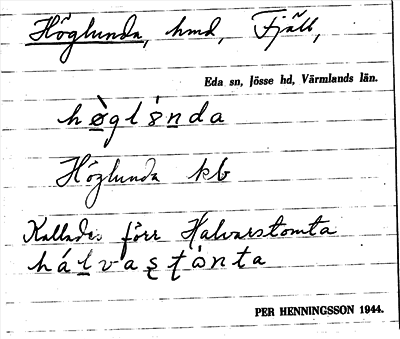 Höglunda, hmd, Fjäll,
Eda sn, Jösse hd, Värmlands län.
hø̀gl󠀠ènda
Höglunda kb
Kallades förr Halvarstomta
hálvaʂʈònta
PER HENNINGSSON 1944.